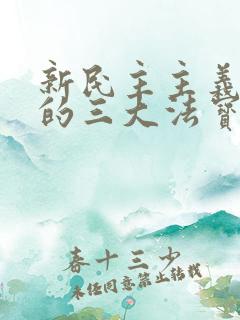 新民主主义
的三大法宝
春十三少
未经同意禁止转载